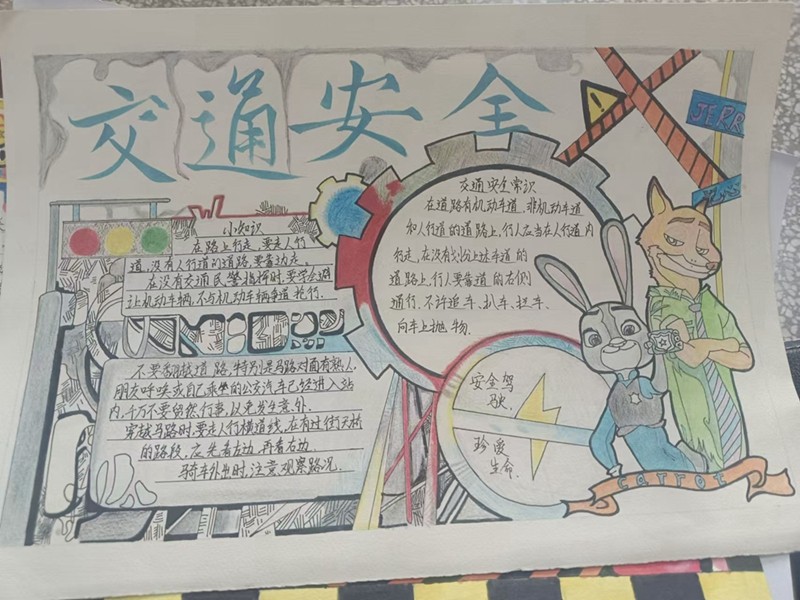 交通安全
小知识
在路上行走,要走人行
道,没有人行道的道路,要靠边走.
在没有交通民警指挥时,要学会避
让机动车辆,不与机动车辆争道抢行.
不要
道路,特别是马路对面有熟人,
朋友呼唤或自己乘坐的公交汽车已经进入站
内,千万不要贸然行事,以免发生意外.
穿越马路时,要走人行横道线,在有过街天桥
的路段,应先看左边,再看右边.
骑车外出时,注意观察路况.
交通安全常识
在道路有机动车道、非机动车道
和人行道的道路上,行人应当在人行道内
行走,在没有划分上述车道的
道路上,行人要靠道的右侧
通行.不许追车、扒车、拦车、
向车上抛物.
安全驾
驶,
珍爱
生命.
JERR
CARROT